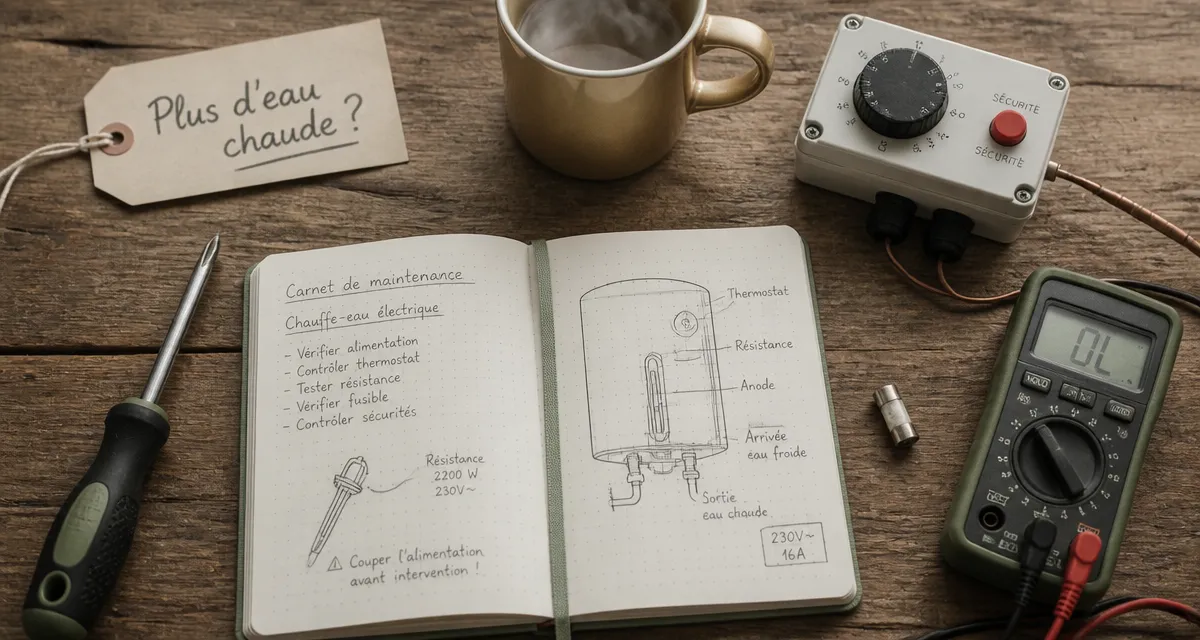 Plus d'eau
chaude ?
SÉCURITÉ
SÉCURITÉ
Carnet de maintenance
Chauffe-eau électrique
- Vérifier alimentation
- Contrôler thermostat
- Tester résistance
- Vérifier fusible
- Contrôler sécurités
Résistance
2200 W
230V~
⚠ Couper l'alimentation
avant intervention !
Thermostat
Résistance
Anode
Arrivée
eau froide
Sortie
eau chaude
230V~
16A
OL
HOLD